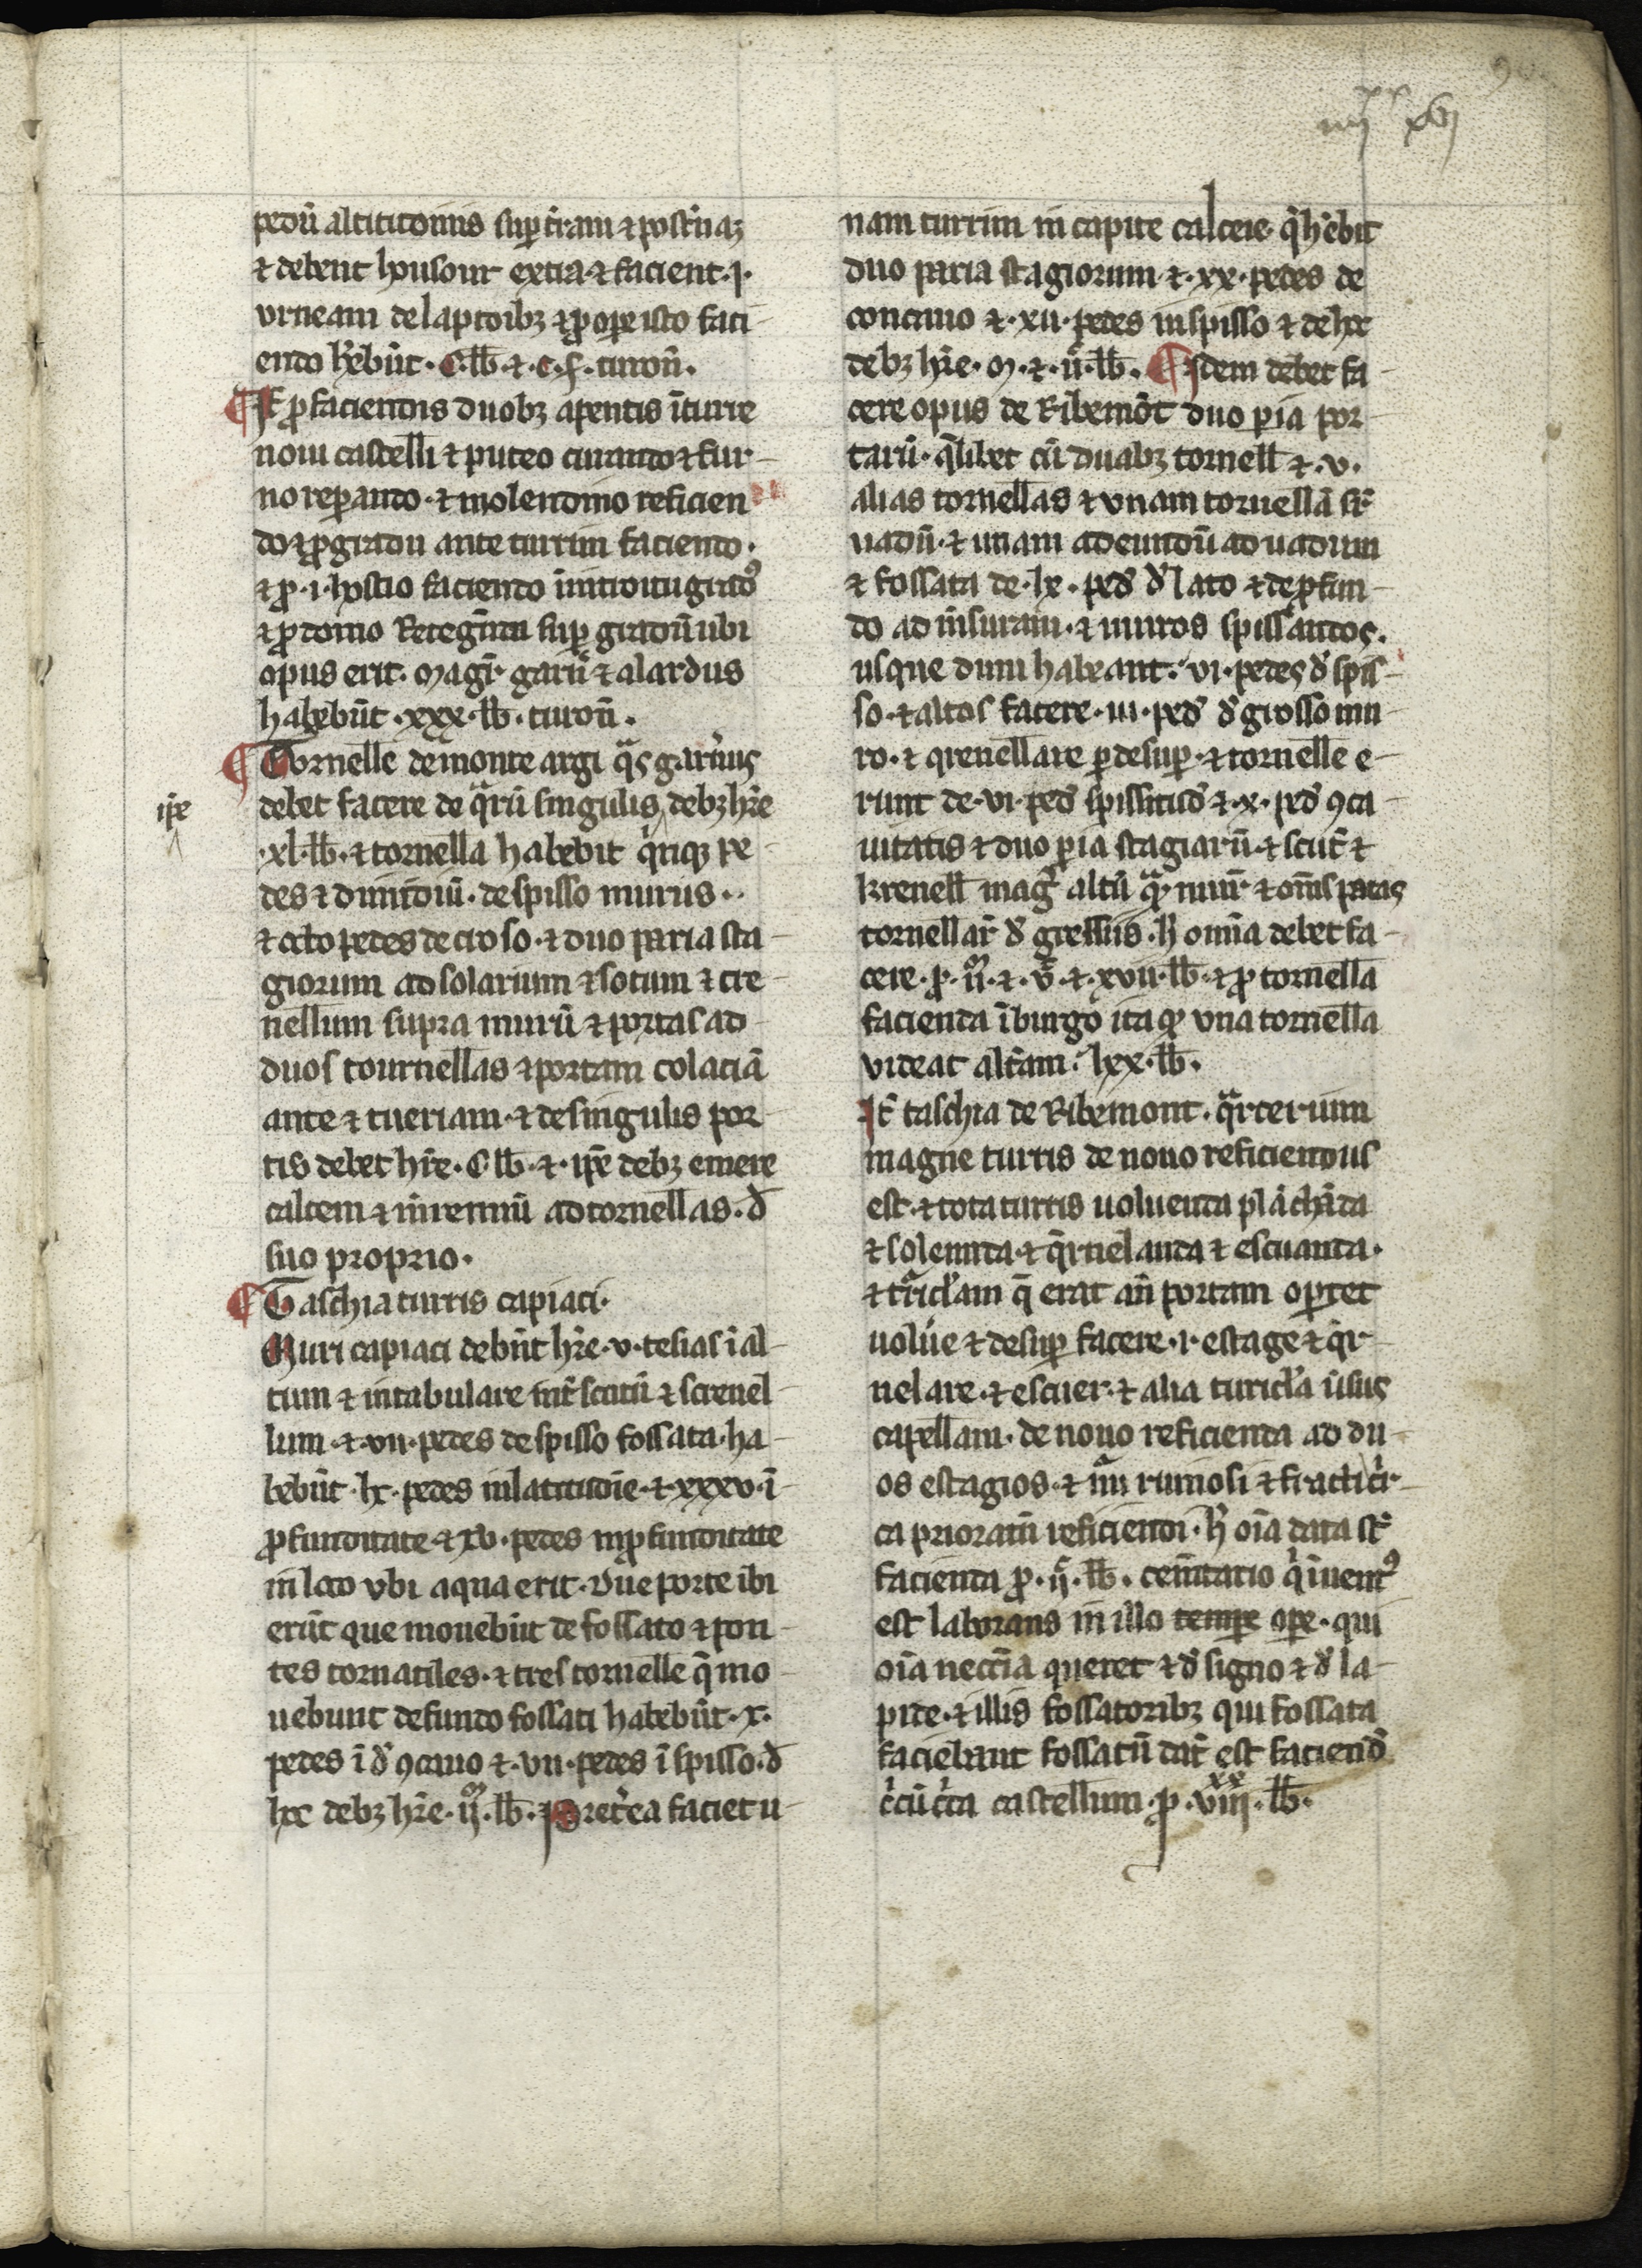 iiijxx xvj
pedū altitudinis sup̱ t̄ram ⁊ posť naꝫ
⁊ debent housour extia ⁊ facient · j ·
urneam de lapidibꝫ ⁊ ꝓ oꝑe isto faci-
endo hēbūt · C · lb̄ · ⁊ · C · s̄ · turoñ ·
¶ It̄ ꝓ faciendis duobꝫ apentis ī turre
noui castelli ⁊ puteo curando ⁊ fur-
no reꝑando · ⁊ molendino reficien
do ⁊ ꝓ gradu ante turrim faciendo ·
⁊ ꝓ · i · hostio faciendo ī introitu grad᷒
⁊ ꝓ domo sup̱ gradū ubi
opus erit · Magr̄ garñ ⁊ alardus
habebūt · xxx · lb̄ · turoñ ·
¶ Tornelle de monte argi qͣs garñius
debet facere de qͣrū singulis debꝫ hr̄e
ip̄e
· xl · lb̄ · ⁊ tornella habebit qͥnqꝫ pe-
des ⁊ dimidiū · de spisso murus ·
⁊ octo pedes de croso · ⁊ duo paria sta-
giorum ad solarium ⁊ sotum ⁊ cre-
nellum supra murū ⁊ portas ad
duos tournellas ⁊ portam colaciā
ante ⁊ tueriam · ⁊ de singulis por-
tis debet hr̄e · C lb̄ · ⁊ · ip̄e debꝫ emere
calcem ⁊ mirennū ad tornellas · d̄
suo proprio ·
¶ Taschia turris capiaci ·
Muri capiaci debūt hr̄e · v · tesias ī al-
tum ⁊ intabulare int̄ scutū ⁊ screnel-
lum · ⁊ · vii · pedes de spisso fossata · ha-
bebūt · lx · pedes in latitudīe · ⁊ · xxxv · ī
ꝓfunditate ⁊ xv · pedes in ꝓfunditate
in loco vbi aqua erit · Due porte ibi
erūt que mouebūt de fossato ⁊ pon-
tes tornatiles · ⁊ tres tornelle q̄ mo-
uebunt de fundo fossati habebūt · x ·
pedes ī d̄ ꝯcauo ⁊ · vii · pedes ī spisso · d̄
hoc debꝫ hr̄e · ijᵐ · lb̄ · Pret̄ea faciet u-
nam turrim in capite calceie · q̄ hēbit
duo paria stagiorum ⁊ · xx · pedes de
concauo ⁊ · xii · pedes in spisso ⁊ de hoc
debꝫ hr̄e · M · ⁊ · iiᶜ · lb̄ · ¶ Idem debet fa-
cere opus de Ribemōt duo ꝑia por-
tarū · q̄libet cū duabꝫ tornell̄ ⁊ · v ·
alias tornellas ⁊ vnam tornellā sr̄
uadū · ⁊ unam ad eundū ad uadum
⁊ fossata de · lx · ped̄ d̄ lato ⁊ de ꝓfun-
do ad mēsuram · ⁊ muros spissandos ·
usque dum habeant · vi · pedes d̄ spis-
so · ⁊ altos facere · iii · ped̄ d̄ grosso mu-
ro · ⁊ qrenellare ꝑ desuꝑ · ⁊ tornelle e-
runt de · vi · ped̄ spissitud̄ ⁊ · x · ped̄ ꝯca-
uitatis ⁊ duo ꝑia stagiarū · ⁊ scut̄ ⁊
krenell̄ mag̃ altū qͣ mur̄ ⁊ om̄s portas
tornellar̄ d̄ gressiis · h̄ omīa debet fa-
cere · ꝓ · iiᵐ · ⁊ · vᶜ · ⁊ · xvii · lb̄ · ⁊ ꝓ tornella
facienda ī burgo ita qꝫ vna tornella
videat alťam · lxx · lb̄ ·
It̄ taschia de Ribemont · qͣrterium
magne turris de nouo reficiendus
est · ⁊ tota turris uoluenda plāchāda
⁊ solemda · ⁊ q̄rnelanda ⁊ escuanda ·
⁊ turicl̄am q̄ erat añ portam oportet
uolúe ⁊ desuꝑ facere · i · estage ⁊ qͥr-
nelare · ⁊ escuer · ⁊ alia turicl̄a ūsus
capellam · de nouo reficienda ad du-
os estagios · ⁊ mͬi ruinosi ⁊ fracti cir-
ca prioratū reficiendi · h̄ oīa data st̄
facienda ꝓ · ijᶜ · lb̄ · cem̄tario qͥ īuent᷒
est laborans in illo tempe oꝑe · qui
oīa neccīa queret ⁊ d̄ ligno ⁊ d̄ la-
pide · ⁊ illis fossatoribꝫ qui fossata
faciebant fossatū dat̄ est faciend̄
cͥcū cͥca castellum · ꝓ · viijxx · lb̄ ·